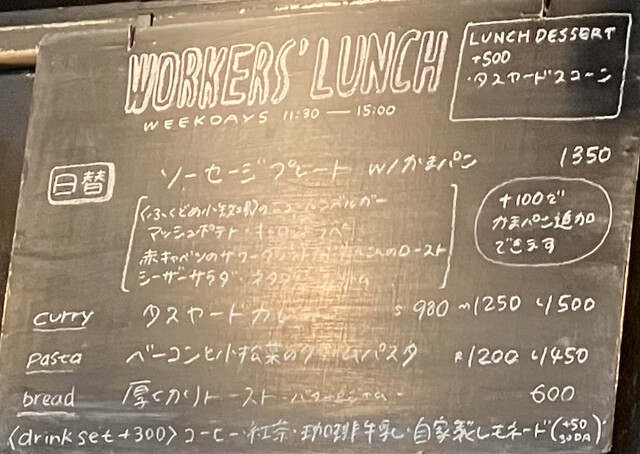 WORKERS' LUNCH
WEEKDAYS 11:30 — 15:00
LUNCH DESSERT
+500
・タスヤードスコーン
日替
ソーセージプレート w/かまパン 1350
マッシュポテト・
赤キャベツのサワー のロースト
シーザーサラダ・
+100で
かまパン追加
できます
curry タスヤードカレー S 980 M1250 L1500
pasta ベーコンと小松菜のクリームパスタ R1200 L1450
bread 厚くカリトースト・バターとジャム 600
〈drink set +300〉コーヒー・紅茶・珈琲牛乳・自家製レモネード(+50 SODA)